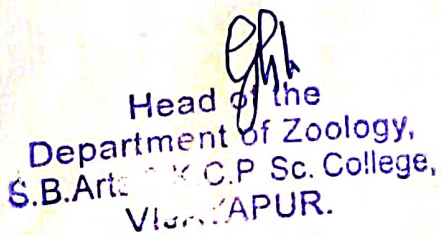 Head of the
Department of Zoology,
S.B.Arts K.C.P Sc. College,
VIJAYAPUR.